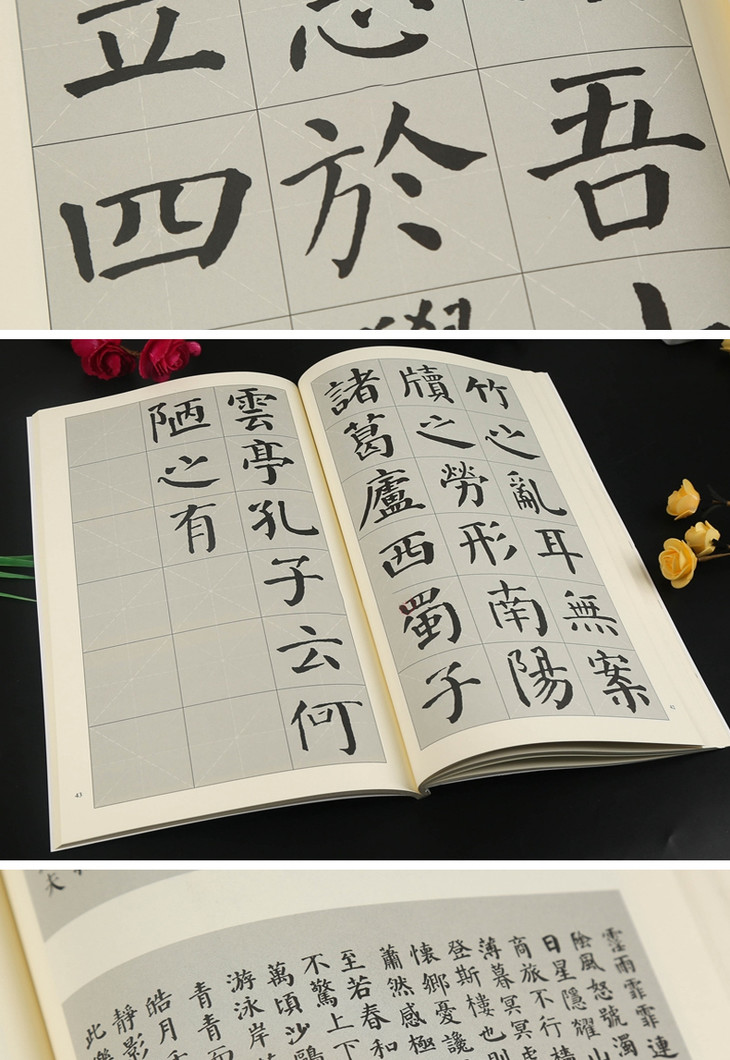 吾
於
立四
竹之亂耳無案
牘之勞形南陽
諸葛廬西蜀子
42
雲亭孔子云何
陋之有
43
霪雨霏霏連
陰風怒號濁
日星隱耀山
商旅不行
薄暮冥冥虎
登斯樓也則
懷鄉憂讒
蕭然感極
至若春和
不驚上下
萬頃沙鷗
游泳岸
青青而
皓月
靜影
此樂